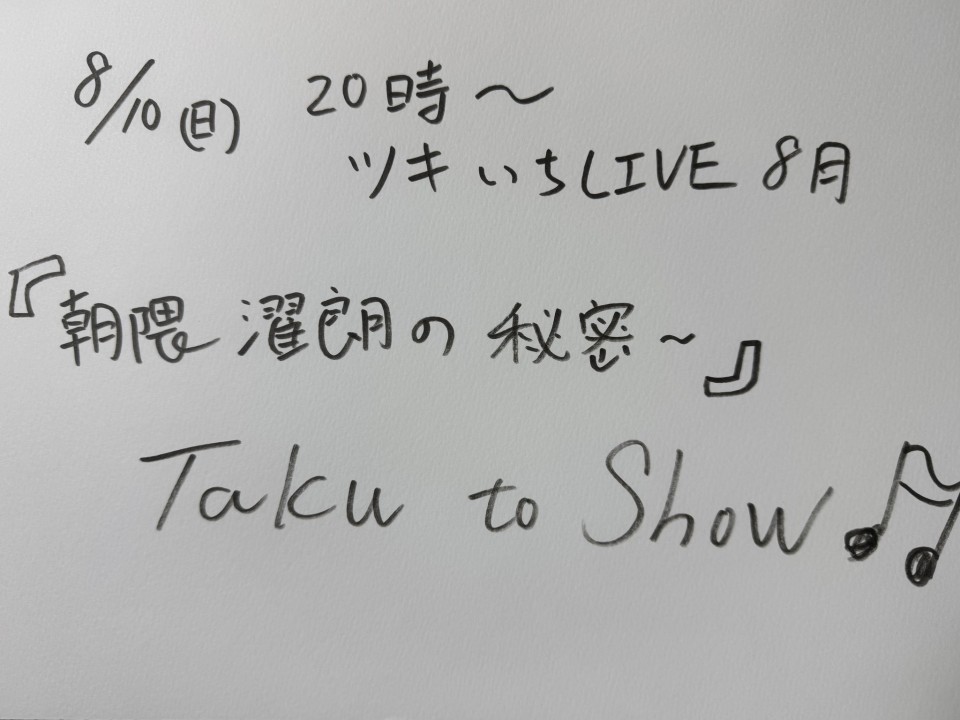 8/10(日) 20時～
ツキいちLIVE 8月
『朝隈 濯朗の秘密~』
Taku to Show